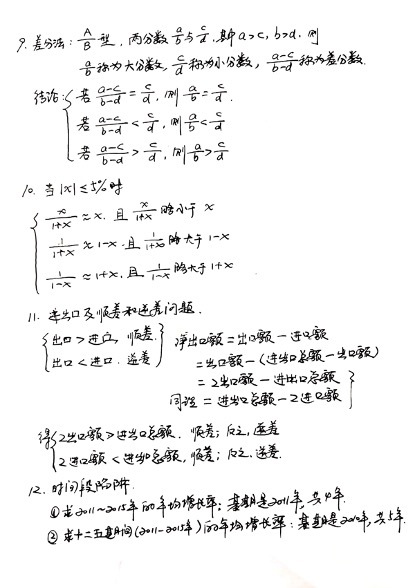 9. 差分法: A/B 型, 两分数 a/b 与 c/d, 其中 a>c, b>d. 则
a/b 称为大分数, c/d 称为小分数, a-c/b-d 称为差分数.
结论: { 若 a-c/b-d = c/d, 则 a/b = c/d.
若 a-c/b-d < c/d, 则 a/b < c/d
若 a-c/b-d > c/d, 则 a/b > c/d
10. 当 |x| ≤ 5% 时
x/1+x ≈ x, 且 x/1+x 略小于 x
1/1+x ≈ 1-x, 且 1/1+x 略大于 1-x
1/1-x ≈ 1+x, 且 1/1-x 略大于 1+x
11. 进出口及顺差和逆差问题.
{ 出口 > 进口, 顺差.
出口 < 进口. 逆差 }
净出口额 = 出口额 - 进口额
= 出口额 - (进出口总额 - 出口额)
= 2出口额 - 进出口总额
同认 = 进出口总额 - 2进口额 }
得 { 2出口额 > 进出口总额, 顺差; 反之, 逆差
2进口额 < 进出口总额, 顺差; 反之, 逆差.
12. 时间段陷阱.
① 求2011~2015年的年均增长率: 基期是2011年, 共4年.
② 求十二五期间(2011-2015年)的年均增长率: 基期是2010年, 共5年.